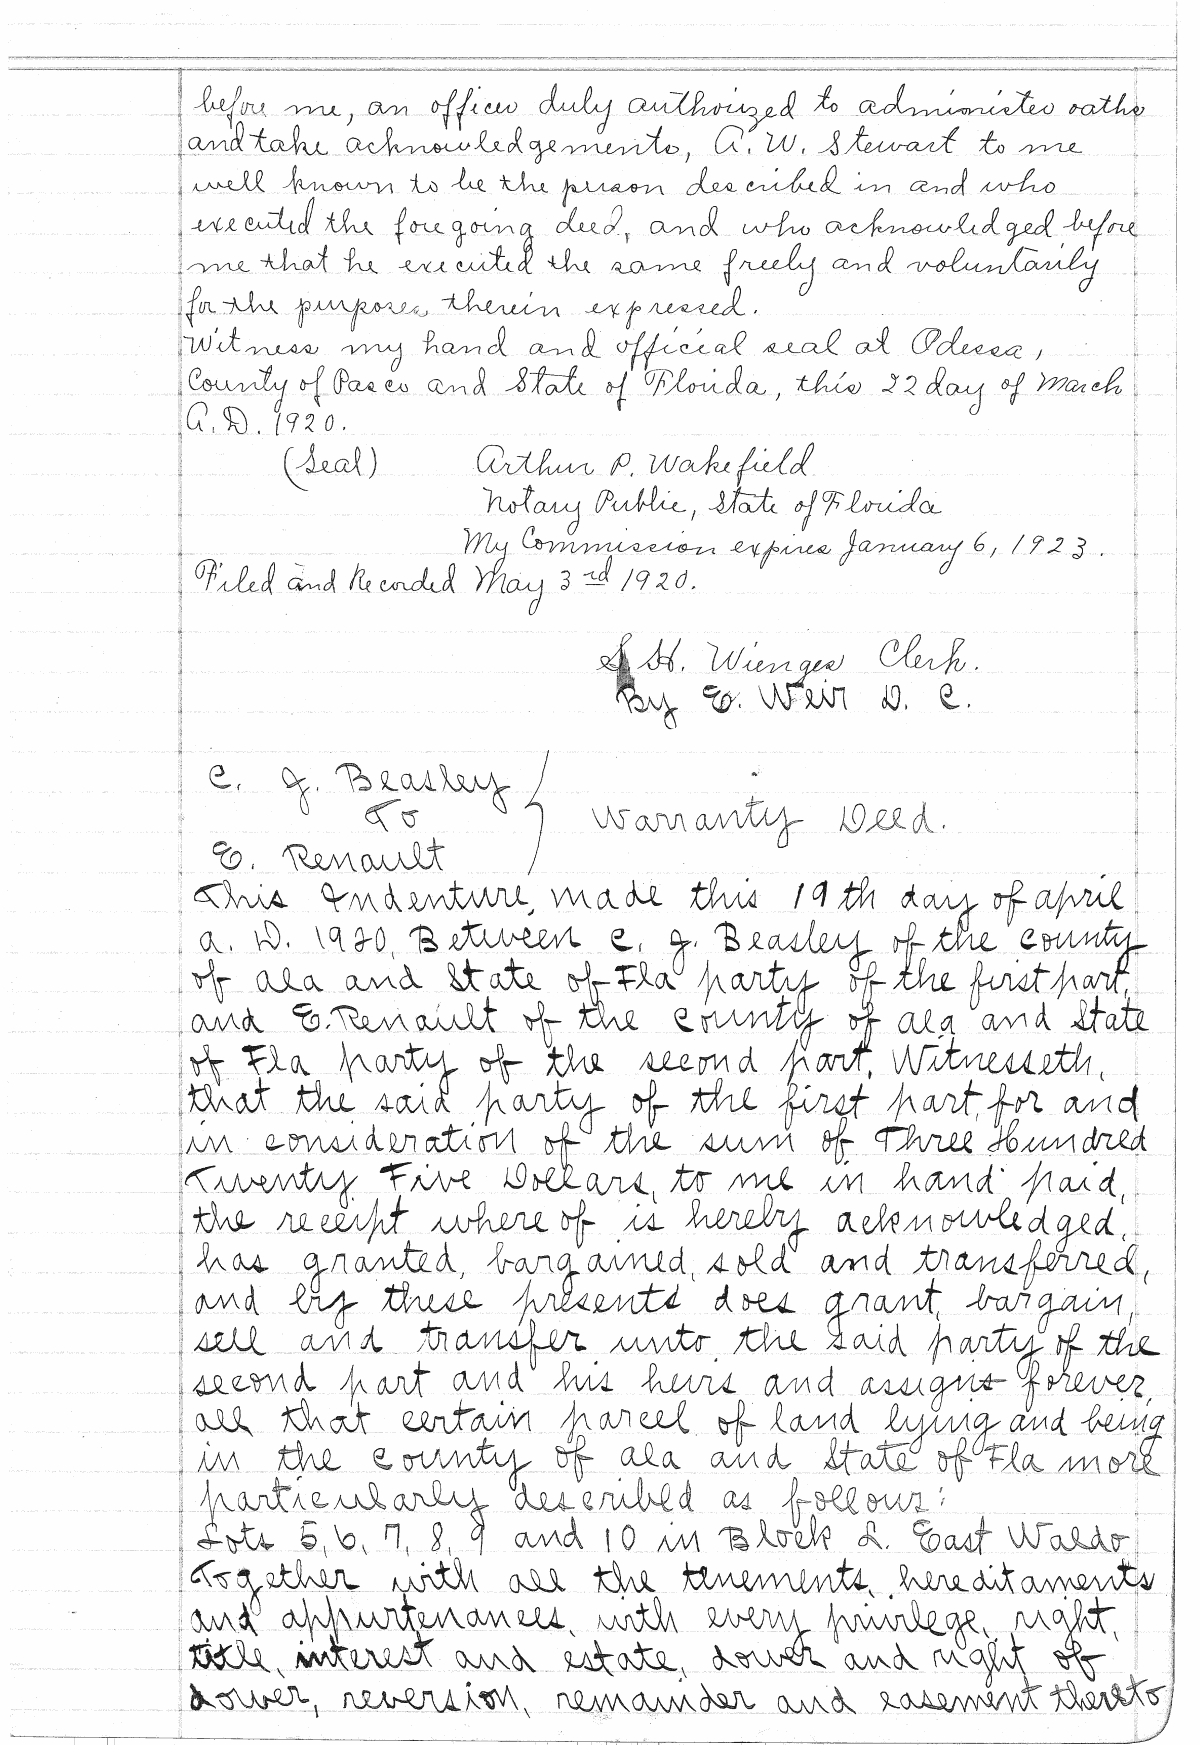 before me, an officer duly authorized to administer oaths
and take acknowledgements, A. W. Stewart to me
well known to be the person described in and who
executed the foregoing deed, and who acknowledged before
me that he executed the same freely and voluntarily
for the purposes therein expressed.
Witness my hand and official seal at Odessa,
County of Pasco and State of Florida, this 22 day of March
A. D. 1920.
(Seal) Arthur P. Wakefield
Notary Public, State of Florida
My Commission expires January 6, 1923.
Filed and Recorded May 3rd 1920.
S H. Wienges Clerk.
By E. Weir D. C.
C. J. Beasley
To
Warranty Deed.
E. Renault
This Indenture, made this 19th day of April
A. D. 1920, Between C. J. Beasley of the County
of Ala and State of Fla party of the first part,
and E. Renault of the County of Ala and State
of Fla party of the second part, Witnesseth,
that the said party of the first part, for and
in consideration of the sum of Three Hundred
Twenty Five Dollars, to me in hand paid,
the receipt where of is hereby acknowledged,
has granted, bargained, sold and transferred,
and by these presents does grant, bargain,
sell and transfer unto the said party of the
second part and his heirs and assigns forever,
all that certain parcel of land lying and being
in the County of Ala and State of Fla more
particularly described as follows:
Lots 5, 6, 7, 8, 9 and 10 in Block L. East Waldo
Together with all the tenements, hereditaments
and appurtenances, with every privilege, right,
title, interest and estate, dower and right of
dower, reversion, remainder and easement thereto